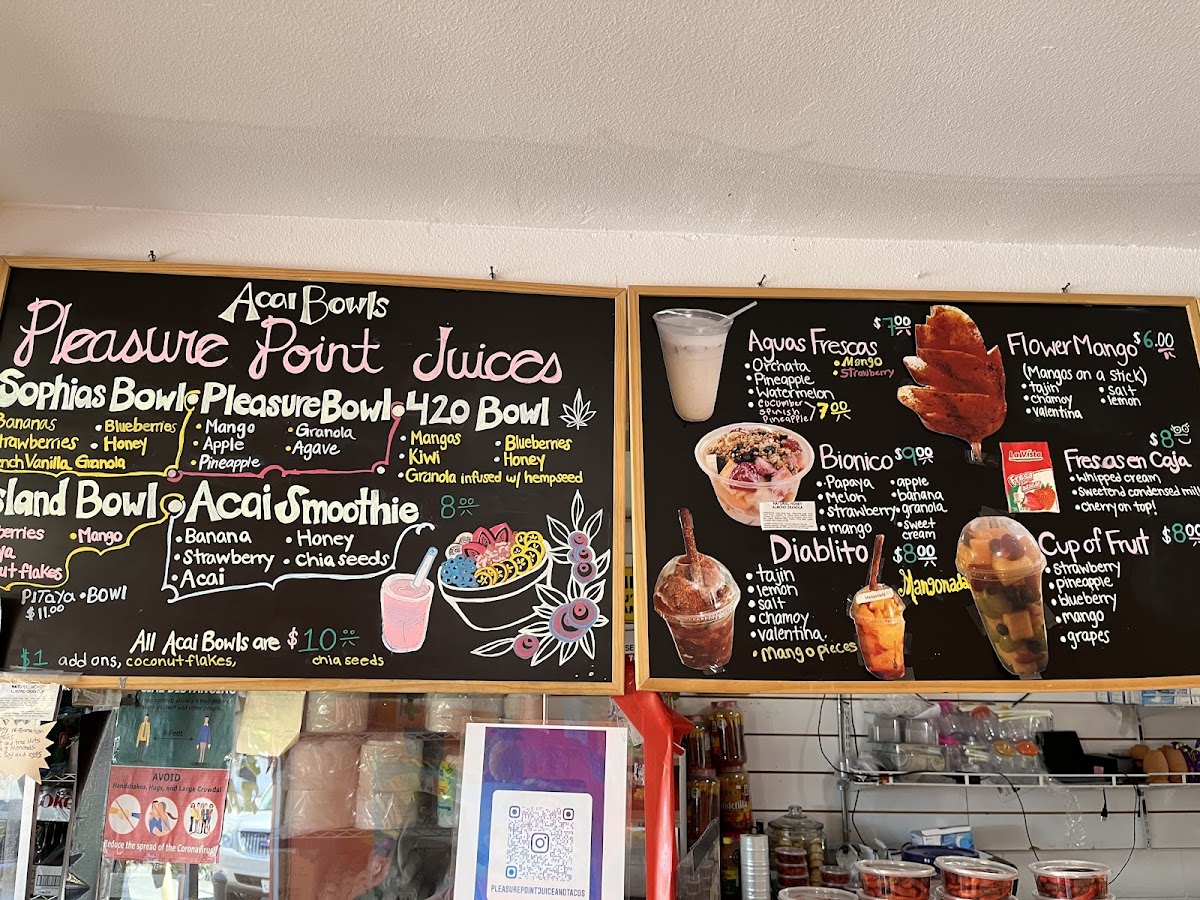 Acai Bowls
Pleasure Point Juices
Sophias Bowl
Bananas
Strawberries
• Blueberries
• Honey
French Vanilla Granola
Pleasure Bowl
• Mango
• Apple
• Pineapple
• Granola
• Agave
420 Bowl
• Mangos
• Kiwi
• Blueberries
• Honey
Granola infused w/ hempseed
Island Bowl
• Mango
Pitaya • Bowl
$11.00
Acai Smoothie 8.00
• Banana
• Strawberry
• Acai
• Honey
• chia seeds
All Acai Bowls are $10.00
$1 add ons, coconut flakes, chia seeds
Aguas Frescas $7.00
• Orchata
• Pineapple
• Watermelon
• Mango
• Strawberry
cucumber
spinish
pineapple
7.00
Flower Mango $6.00
(Mangos on a stick)
• tajin
• chamoy
• valentina
• salt
• lemon
Bionico $9.00
• Papaya
• Melon
• strawberry
• mango
• apple
• banana
• granola
• sweet cream
La Vista
Fresas
Fresas en Caja $8.00
• whipped cream
• Sweeten'd condensed milk
• cherry on top!
Diablito $8.00
• tajin
• lemon
• salt
• chamoy
• valentina
• mango pieces
Mangonada
Cup of Fruit $8.00
• strawberry
• pineapple
• blueberry
• mango
• grapes
6 Feet
AVOID
Handshakes, Hugs, and Large Crowds!
Reduce the spread of the Coronavirus!
PLEASUREPOINTJUICEANDTACOS